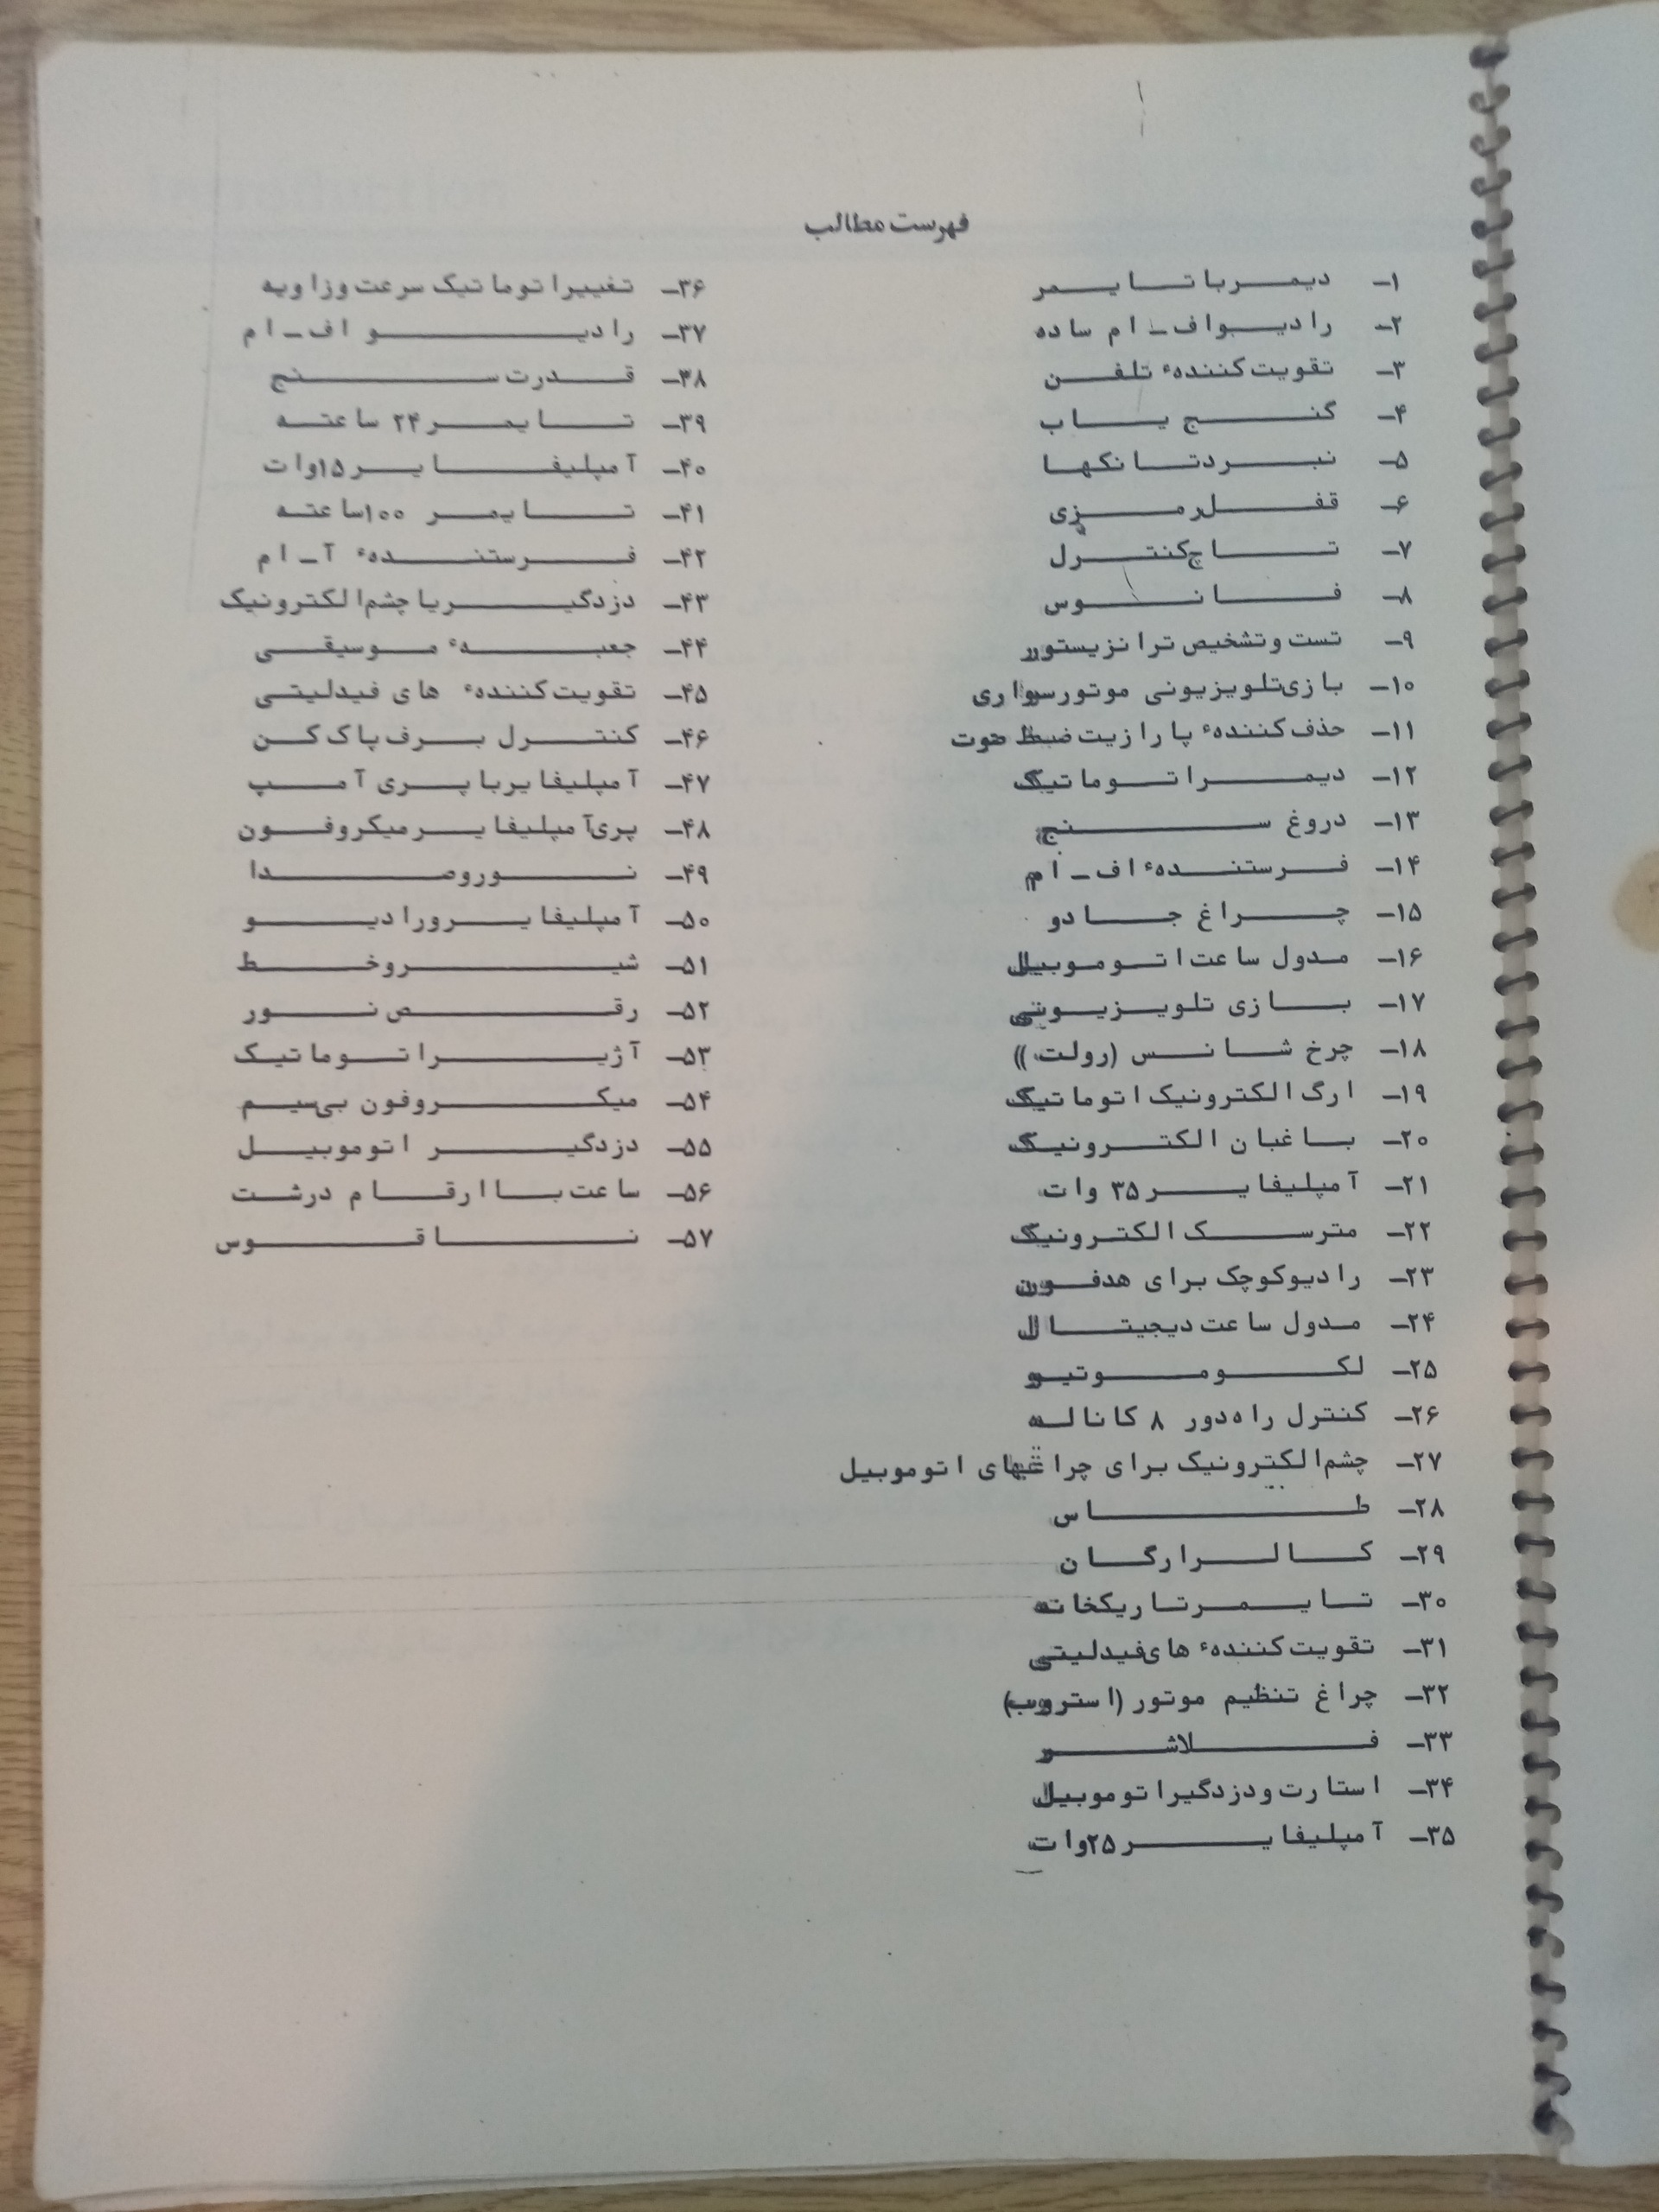 فهرست مطالب
۱- دیمر با تایمر
۲- رادیو اف - ام ساده
۳- تقویت کنندهٔ تلفن
۴- گنج یاب
۵- نبرد تانکها
۶- قفل رمزی
۷- تاچ کنترل
۸- فانوس
۹- تست و تشخیص ترانزیستور
۱۰- بازی تلویزیونی موتور سواری
۱۱- حذف کنندهٔ پارازیت ضبط صوت
۱۲- دیمر اتوماتیک
۱۳- دروغ سنج
۱۴- فرستندهٔ اف - ام
۱۵- چراغ جادو
۱۶- مدول ساعت اتوموبیل
۱۷- بازی تلویزیونی
۱۸- چرخ شانس (رولت)
۱۹- ارگ الکترونیک اتوماتیک
۲۰- باغبان الکترونیک
۲۱- آمپلیفایر ۳۵ وات
۲۲- مترسک الکترونیک
۲۳- رادیو کوچک برای هدفون
۲۴- مدول ساعت دیجیتال
۲۵- لکوموتیو
۲۶- کنترل راه دور ۸ کاناله
۲۷- چشم الکترونیک برای چراغهای اتوموبیل
۲۸- طاس
۲۹- کالر ارگان
۳۰- تایمر تاریکخانه
۳۱- تقویت کنندهٔ های فیدلیتی
۳۲- چراغ تنظیم موتور (استروب)
۳۳- فلاشر
۳۴- استارت و دزدگیر اتوموبیل
۳۵- آمپلیفایر ۲۵ وات
۳۶- تغییر اتوماتیک سرعت وزاویه
۳۷- رادیو اف - ام
۳۸- قدرت سنج
۳۹- تایمر ۲۴ ساعته
۴۰- آمپلیفایر ۱۵ وات
۴۱- تایمر ۱۰۰ ساعته
۴۲- فرستندهٔ آ - ام
۴۳- دزدگیر یا چشم الکترونیک
۴۴- جعبهٔ موسیقی
۴۵- تقویت کنندهٔ های فیدلیتی
۴۶- کنترل برف پاک کن
۴۷- آمپلیفایر با پری آمپ
۴۸- پری آمپلیفایر میکروفون
۴۹- نور وصدا
۵۰- آمپلیفایر ورادیو
۵۱- شیر وخط
۵۲- رقص نور
۵۳- آژیر اتوماتیک
۵۴- میکروفون بی سیم
۵۵- دزدگیر اتوموبیل
۵۶- ساعت با ارقام درشت
۵۷- ناقوس